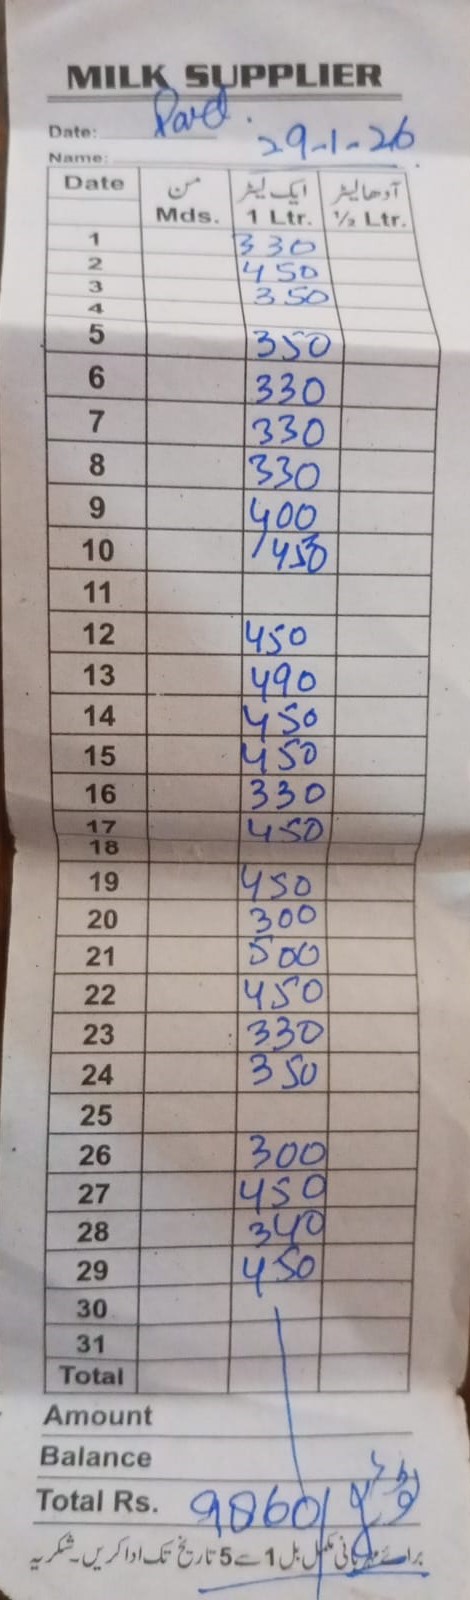 MILK SUPPLIER
Date: Paid
29-1-26
Name:
Date من Mds. ایک لیٹر 1 Ltr. آدھا لیٹر ½ Ltr.
1 330
2 450
3 350
4
5 350
6 330
7 330
8 330
9 400
10 450
11
12 450
13 490
14 450
15 450
16 330
17 450
18
19 450
20 300
21 500
22 450
23 330
24 350
25
26 300
27 450
28 340
29 450
30
31
Total
Amount
Balance
Total Rs. 9860/
برائے مہربانی مکمل بل 1 سے 5 تاریخ تک ادا کریں۔ شکریہ